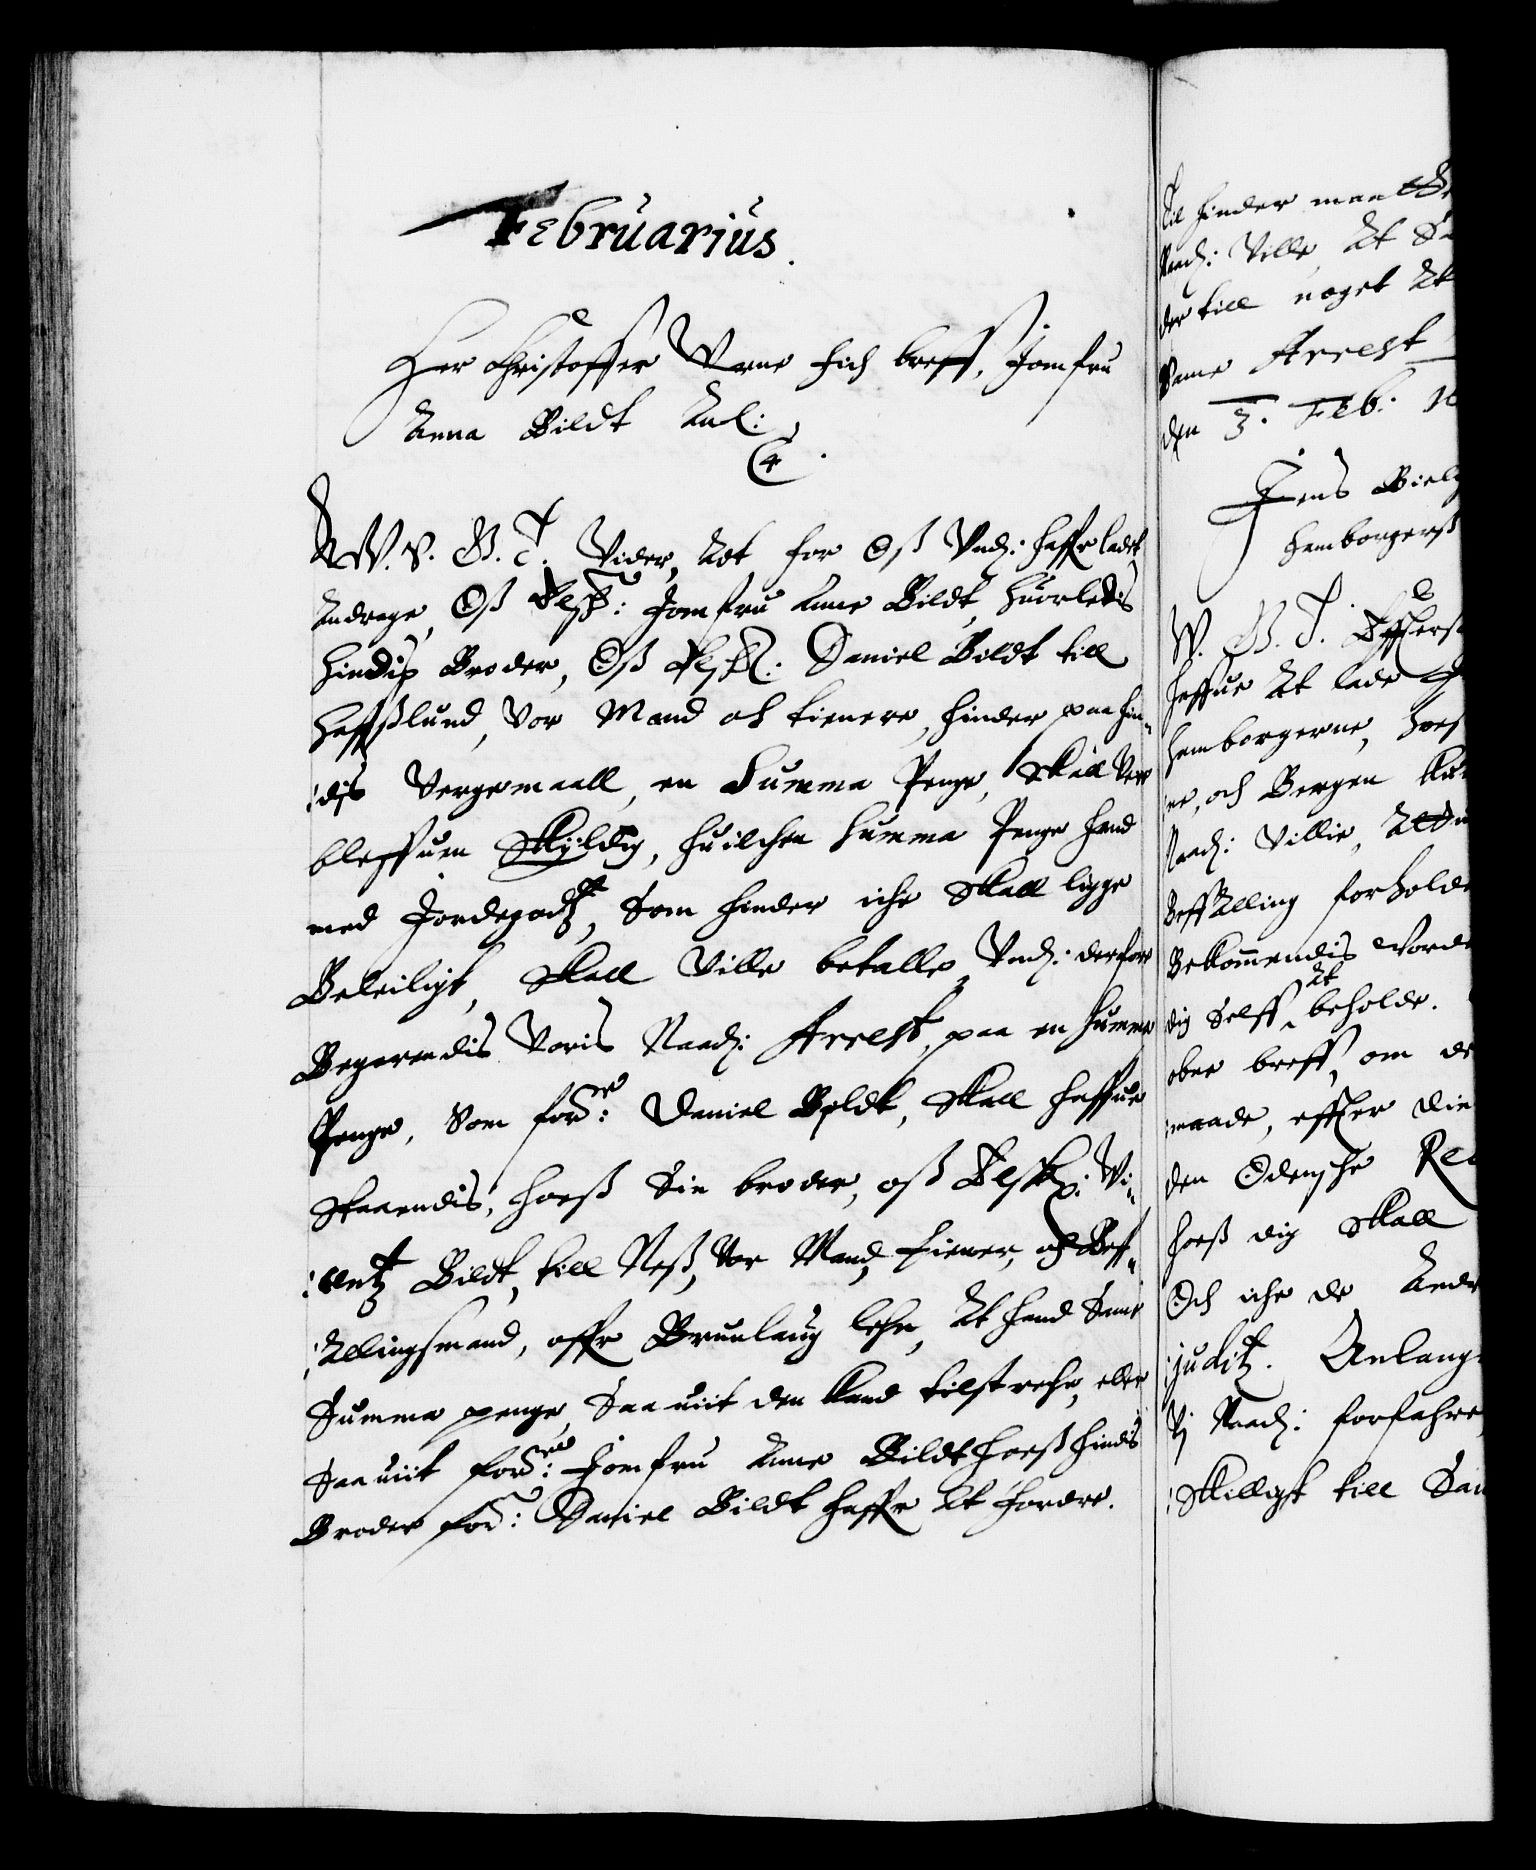 Februarius.
Her Christoffer Vrne fich breff, Jomfru
Anna Bildt Anl:
C 4.
W. S. G. T. Vider, Att for Oß Vnd: haffr ladet
Andrage, Oß Elsk: Jomfru Anne Bildt, huorledis
hindis Broder, Oß Elskl: Daniel Bildt till
Haffslund, Vor Mand och tienere, hinder paa hin-
:dis Vergemaall, en Summa Penge, skall Vere
bleffuen Skyldig, huilchen Summa Penge hand
med Jordegodtz, Som hinder iche skall ligge
Beleiligt, Skall Ville betalle, Vnd: derfore
Begerendis Voris Naad: Arrest, paa en Summa
Penge, Som forne: Daniel Byldt, Skall haffue
staaendis, hoeß Sin broder, oß Elskl: Vi-
:centz Bildt, till Neß, Vor Mand, tiener, och Bef-
:allingsmand, offr Brunlaug lehn, At hand Samme
Summa penge, Saa uit den kand tilstreche, eller
Saa uiit forne: Jomfru Anne Bildt hoeß hindis
Broder for: Daniel Bildt haffr At fordre.
Til hinder maa
Naad: Ville, At
der till noget At
Samme Arrest
den 3. Feb: 16
Jens Biel
hemborgerß
W. G. T. Efftersom
haffue At lade
hemborgerne, hves
ne, och Bergen
Naad: Villie,
Beffalling forholde
Bekommendis vorde
dig Selff At beholde.
obne breff, om
maade, effter din
den Odensche Rec
hoeß dig Skall
Och iche de Andr
:juditz. Anlang
Vj Naad: forfahre
:skilligt till